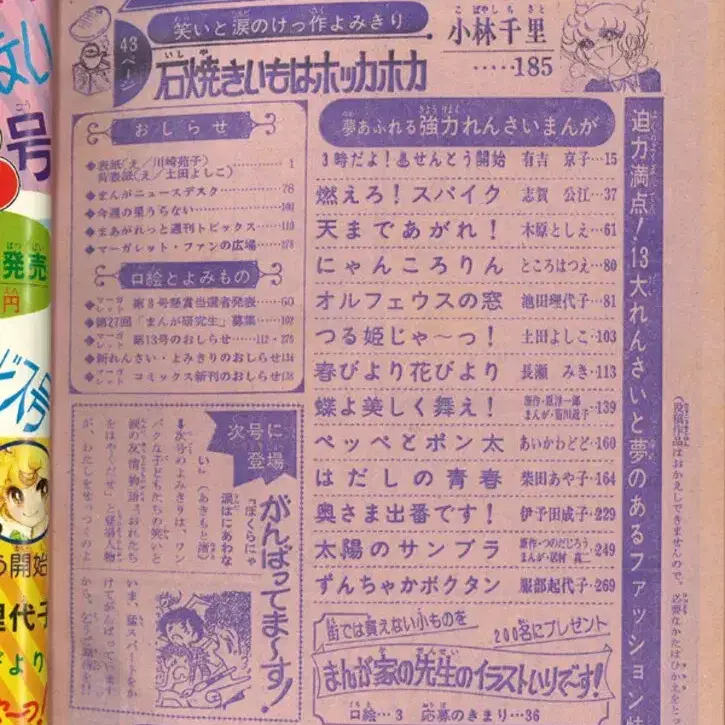 笑いと涙のけっ作よみきり
43ページ
石焼きいもはホッカホカ
小林千里
‥‥‥185
おしらせ
◆表紙(え/川崎苑子)
背表紙(え/土田よしこ)‥‥‥1
◆まんがニュースデスク‥‥‥78
◆今週の星うらない‥‥‥
◆まあがれっと週刊トピックス‥‥‥
◆マーガレット・ファンの広場‥‥‥
口絵とよみもの
◆マーガレット 第8号懸賞当選者発表‥‥60
◆第27回「まんが研究生」募集‥‥
◆マーガレット 第13号のおしらせ‥‥112・276
◆新れんさい・よみきりのおしらせ
◆マーガレット コミックス新刊のおしらせ
夢あふれる強力れんさいまんが
3時だよ!♨せんとう開始 有吉 京子‥15
燃えろ!スパイク 志賀 公江‥37
天まであがれ! 木原としえ‥61
にゃんころりん ところはつえ‥80
オルフェウスの窓 池田理代子‥81
つる姫じゃ〜っ! 土田よしこ‥103
春びより花びより 長瀬 みき‥113
蝶よ美しく舞え! 原作・原淳一郎 まんが・菊川近子‥139
ペッペとポン太 あいかわどど‥160
はだしの青春 柴田あや子‥164
奥さま出番です! 伊予田成子‥229
太陽のサンブラ 原作・つのだじろう まんが・岩村 真二‥249
ずんちゃかボクタン 服部起代子‥269
迫力満点!13大れんさいと夢のあるファッションは
次号に登場
がんばってま〜す!
『ぼくらにゃ
涙はにあわな
い』(あきもと渚)
次号のよみきりは、ワン
パクな子どもたちの笑いと
涙の友情物語。
いま、猛スパートをか
けてがんばっています
街では買えない小ものを
200名にプレゼント
まんが家の先生のイラストいりです!
口絵‥‥3 応募のきまり‥‥36
(投稿作品はおかえしできませんので、必要なかたはひかえを
号
発売
円
う開始
理代子
びより